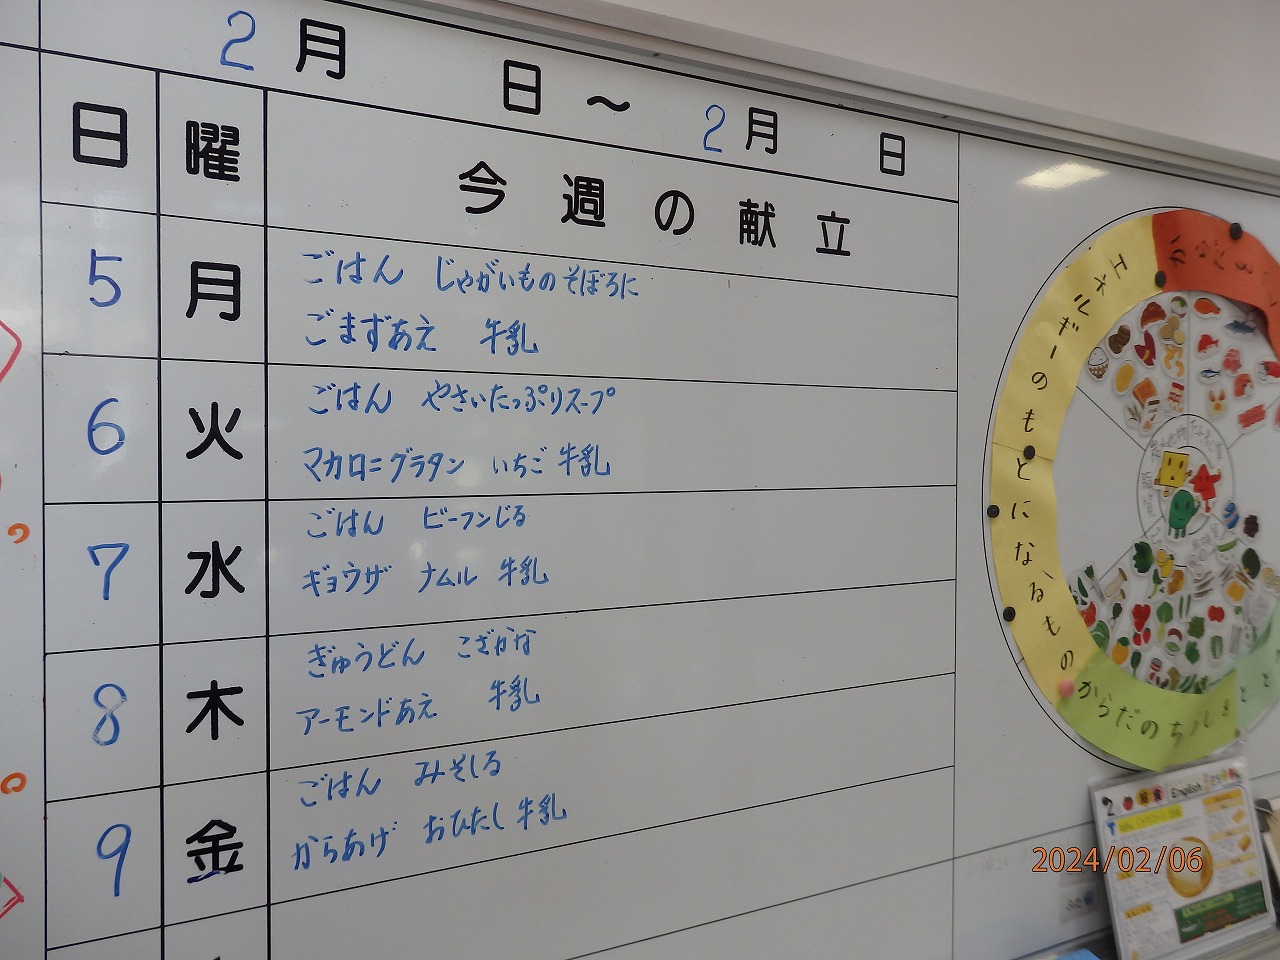 2月 日～2月 日
日 曜 今週の献立
5 月 ごはん じゃがいものそぼろに
ごまずあえ 牛乳
6 火 ごはん やさいたっぷりスープ
マカロニグラタン いちご 牛乳
7 水 ごはん ビーフンじる
ギョウザ ナムル 牛乳
8 木 ぎゅうどん こざかな
アーモンドあえ 牛乳
9 金 ごはん みそしる
からあげ おひたし 牛乳
エネルギーのもとになるもの
からだのちょうしをとと
2 給食 English
2024/02/06